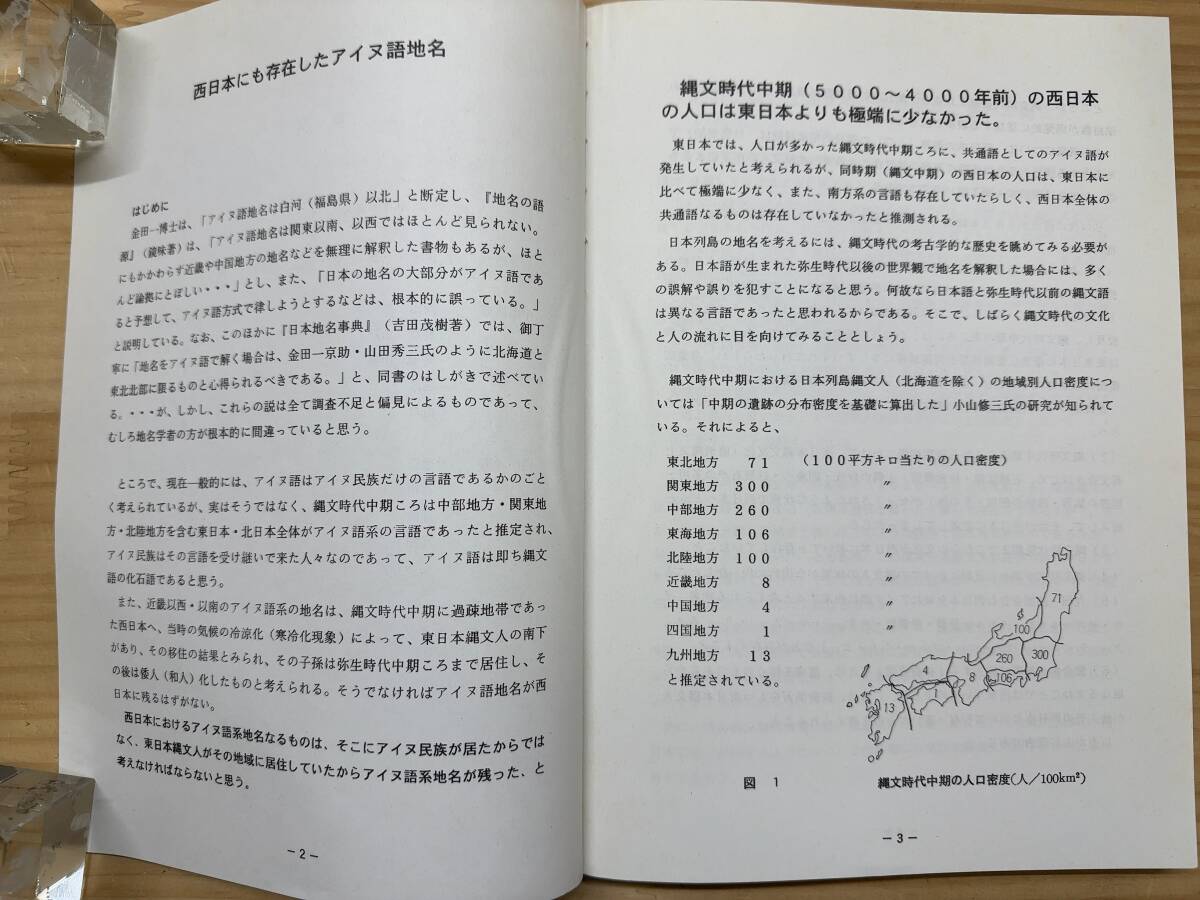 西日本にも存在したアイヌ語地名
はじめに
金田一博士は、「アイヌ語地名は白河（福島県）以北」と断定し、『地名の語
源』（鏡味著）は、『アイヌ語地名は関東以南、以西ではほとんど見られない。
にもかかわらず近畿や中国地方の地名などを無理に解釈した書物もあるが、ほと
んど論拠にとぼしい・・・」とし、また、「日本の地名の大部分がアイヌ語であ
ると予想して、アイヌ語方式で律しようとするなどは、根本的に誤っている。」
と説明している。なお、このほかに『日本地名事典』（吉田茂樹著）では、御丁
寧に「地名をアイヌ語で解く場合は、金田一京助・山田秀三氏のように北海道と
東北北部に限るものと心得られるべきである。」と、同書のはしがきで述べてい
る。・・・が、しかし、これらの説は全て調査不足と偏見によるものであって、
むしろ地名学者の方が根本的に間違っていると思う。
ところで、現在一般的には、アイヌ語はアイヌ民族だけの言語であるかのごと
く考えられているが、実はそうではなく、縄文時代中期ころは中部地方・関東地
方・北陸地方を含む東日本・北日本全体がアイヌ語系の言語であったと推定され、
アイヌ民族はその言語を受け継いで来た人々なのであって、アイヌ語は即ち縄文
語の化石語であると思う。
また、近畿以西・以南のアイヌ語系の地名は、縄文時代中期に過疎地帯であっ
た西日本へ、当時の気候の冷涼化（寒冷化現象）によって、東日本縄文人の南下
があり、その移住の結果とみられ、その子孫は弥生時代中期ころまで居住し、そ
の後は倭人（和人）化したものと考えられる。そうでなければアイヌ語地名が西
日本に残るはずがない。
西日本におけるアイヌ語系地名なるものは、そこにアイヌ民族が居たからでは
なく、東日本縄文人がその地域に居住していたからアイヌ語系地名が残った、と
考えなければならないと思う。
－２－
縄文時代中期（５０００～４０００年前）の西日本
の人口は東日本よりも極端に少なかった。
東日本では、人口が多かった縄文時代中期ころに、共通語としてのアイヌ語が
発生していたと考えられるが、同時期（縄文中期）の西日本の人口は、東日本に
比べて極端に少なく、また、南方系の言語も存在していたらしく、西日本全体の
共通語なるものは存在していなかったと推測される。
日本列島の地名を考えるには、縄文時代の考古学的な歴史を眺めてみる必要が
ある。日本語が生まれた弥生時代以後の世界観で地名を解釈した場合には、多く
の誤解や誤りを犯すことになると思う。何故なら日本語と弥生時代以前の縄文語
は異なる言語であったと思われるからである。そこで、しばらく縄文時代の文化
と人の流れに目を向けてみることとしよう。
縄文時代中期における日本列島縄文人（北海道を除く）の地域別人口密度につ
いては「中期の遺跡の分布密度を基礎に算出した」小山修三氏の研究が知られて
いる。それによると、
東北地方　７１　（１００平方キロ当たりの人口密度）
関東地方　３００　〃
中部地方　２６０　〃
東海地方　１０６　〃
北陸地方　１００　〃
近畿地方　８　〃
中国地方　４　〃
四国地方　１　〃
九州地方　１３
と推定されている。
71
100
260
300
106
8
4
1
13
図　１　縄文時代中期の人口密度(人／100km²)
－３－